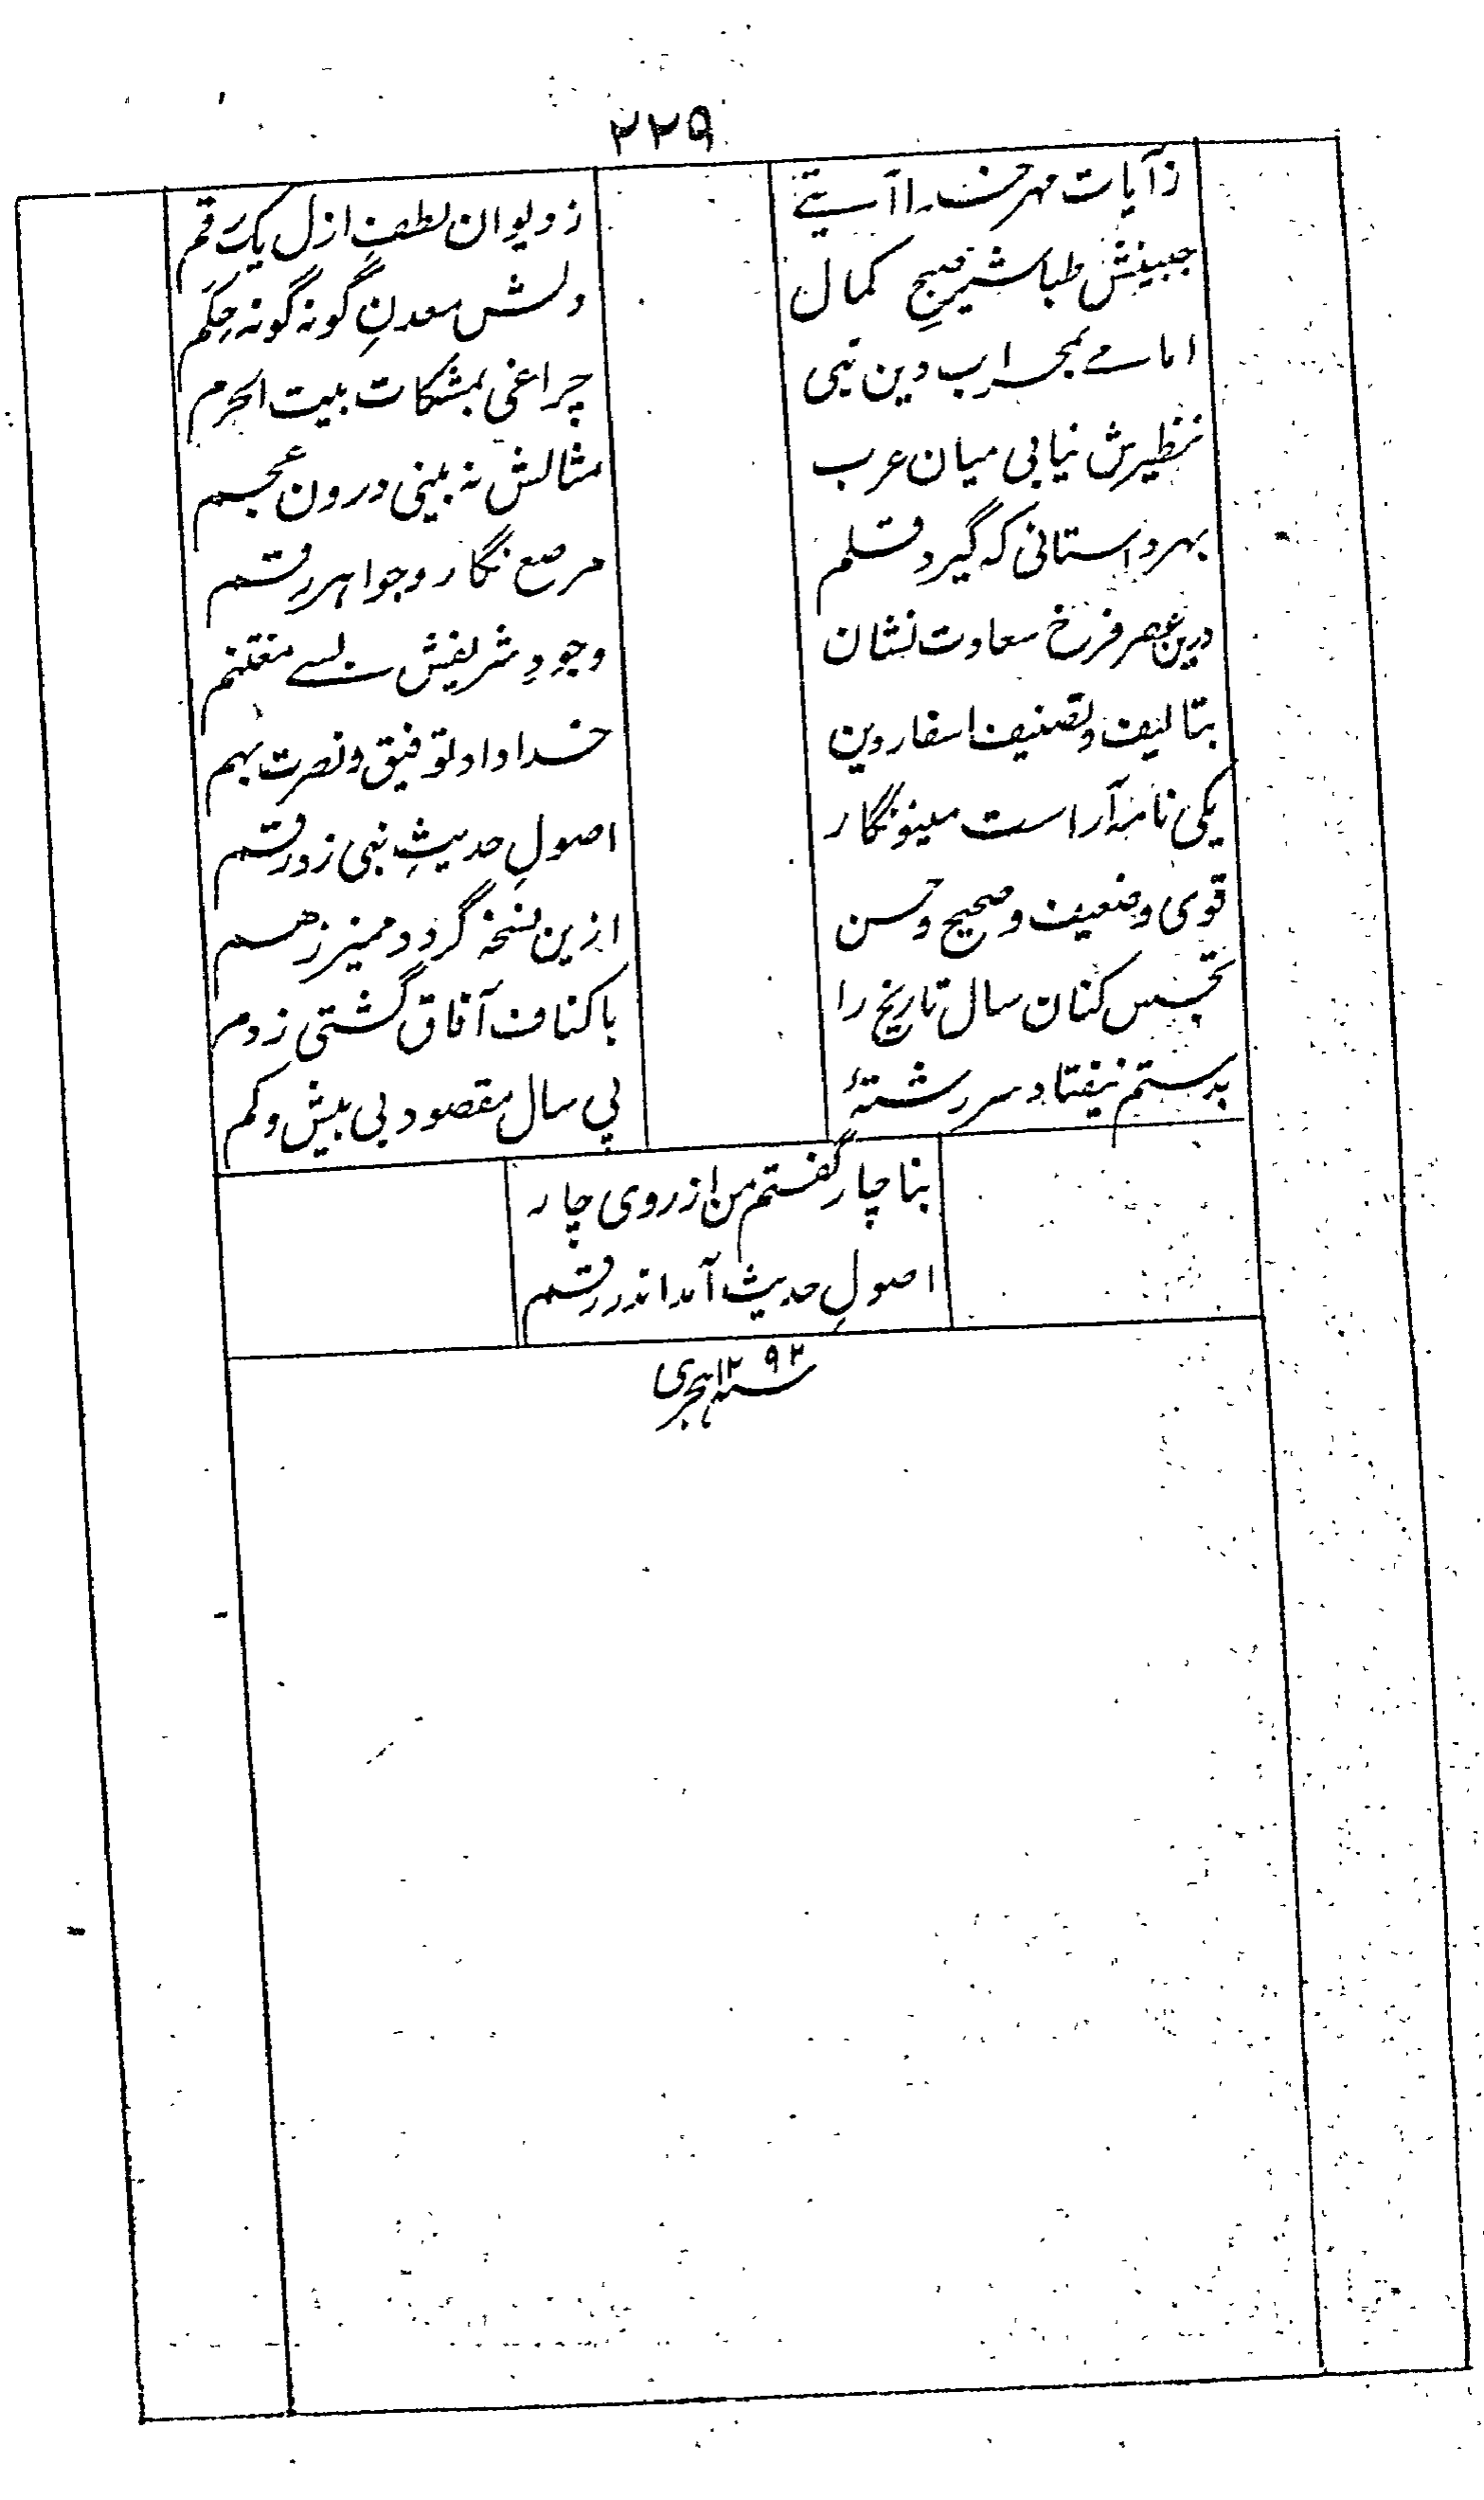 ۲۲۹
ز آیات مهر خدا آیتے
ز دیوان لطفِ ازل یک رقم
جبینش طباشیر صبحِ کمال
دلش معدنِ گونه گونه حِکَم
امامے بمحراب دین نبی
چراغی بمشکات بیت الحرم
نظیرش نیابی میان عرب
مثالش نه بینی درون عجم
بهر داستانی که گیرد قلم
مرصع نگار و جواهر رقم
درین عصر فرخ سعادت نشان
وجودِ شریفش بسے مغتنم
بتالیف و تصنیف اسفار دین
خدا داد توفیق و نصرت بهم
یکی نامه آراست مینو نگار
اصولِ حدیثِ نبی زد رقم
قوی و ضعیف و صحیح و حسن
ازین نسخه گردد ممیز ز هم
تجسس کنان سال تاریخ را
باکناف آفاق گشتی زدم
بدستم نیفتاد سر رشتهٔ
پی سال مقصود بی بیش و کم
بناچار گفتم من از روی چار
اصولِ حدیث آمد اندر رقم
سنه ۱۲۹۲ هجری